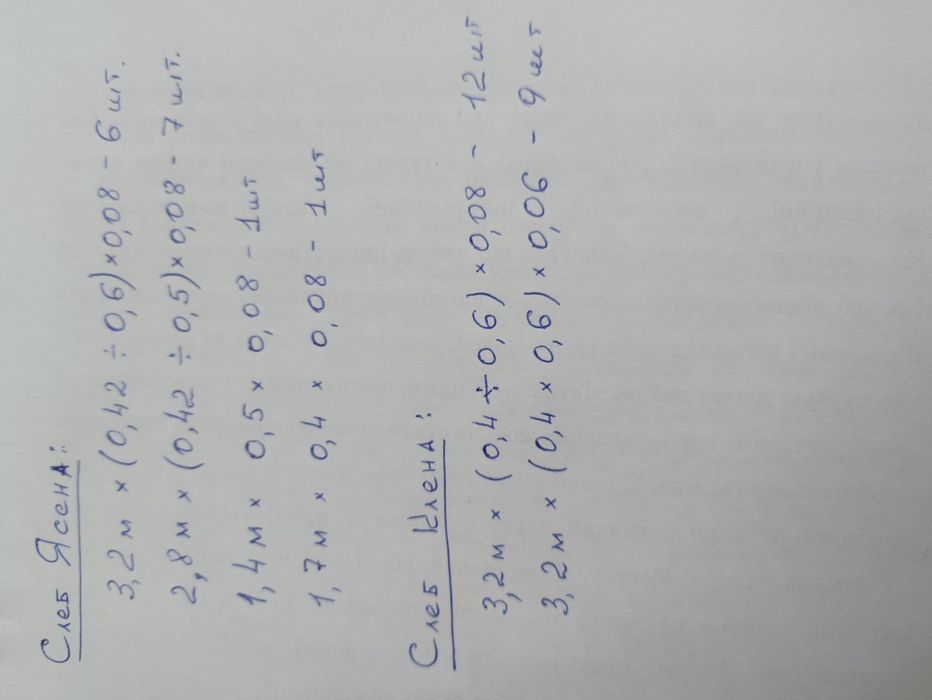 Слеб Ясена:
3,2м × (0,42 ÷ 0,6) × 0,08 - 6 шт.
2,8м × (0,42 ÷ 0,5) × 0,08 - 7 шт.
1,4м × 0,5 × 0,08 - 1шт
1,7м × 0,4 × 0,08 - 1шт
Слеб Клена:
3,2м × (0,4 ÷ 0,6) × 0,08 - 12 шт
3,2м × (0,4 × 0,6) × 0,06 - 9 шт